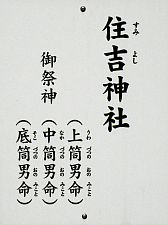 住吉神社
すみ よし
御祭神
（上筒男命）
うわ づつの おの みこと
（中筒男命）
なか づつの おの みこと
（底筒男命）
そこ づつの おの みこと